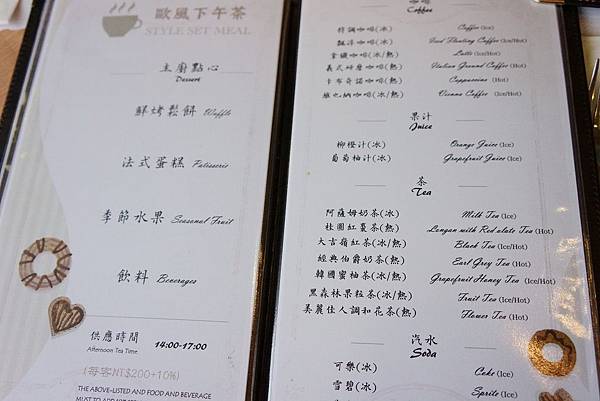 歐風下午茶
STYLE SET MEAL
主廚點心
Dessert
鮮烤鬆餅 Waffle
法式蛋糕 Patisserie
季節水果 Seasonal Fruit
飲料 Beverages
供應時間 14:00-17:00
Afternoon Tea Time
(每客NT$200+10%)
THE ABOVE-LISTED AND FOOD AND BEVERAGE
咖啡
Coffee
特調咖啡(冰) Coffee (Ice)
飄浮咖啡(冰) Iced Floating Coffee (Ice/Hot)
拿鐵咖啡(冰/熱) Latte (Ice/Hot)
義式研磨咖啡(冰/熱) Italian Ground Coffee (Hot)
卡布奇諾咖啡(冰/熱) Cappuccino (Hot)
維也納咖啡(冰/熱) Vienna Coffee (Ice/Hot)
果汁
Juice
柳橙汁(冰) Orange Juice (Ice)
葡萄柚汁(冰) Grapefruit Juice (Ice)
茶
Tea
阿薩姆奶茶(冰) Milk Tea (Ice)
桂圓紅棗茶(熱) Longan with Red alate Tea (Hot)
大吉嶺紅茶(冰/熱) Black Tea (Ice/Hot)
經典伯爵奶茶(熱) Earl Grey Tea (Hot)
韓國蜜柚茶(冰/熱) Grapefruit Honey Tea (Ice/Hot)
黑森林果粒茶(冰/熱) Fruit Tea (Ice/Hot)
美麗佳人調和花茶(熱) Flower Tea (Hot)
汽水
Soda
可樂(冰) Coke (Ice)
雪碧(冰) Sprite (Ice)